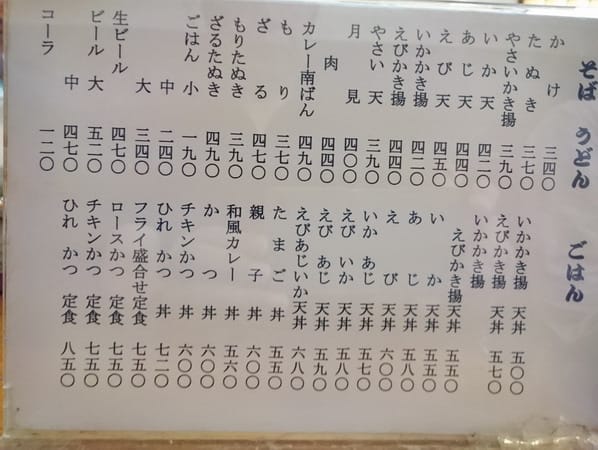 そば うどん
かけ 三四〇
たぬき 三七〇
やさいかき揚 三九〇
いか天 四二〇
あじ天 四四〇
えび天 四五〇
いかかき揚 四二〇
えびかき揚
やさい天 三九〇
月見 四〇〇
肉 四四〇
カレー南ばん 四九〇
もり 三七〇
ざる 四七〇
もりたぬき 三九〇
ざるたぬき 四九〇
ごはん 小 一九〇
中 二四〇
大 三四〇
生ビール 四七〇
ビール 大 五二〇
中 四七〇
コーラ 一二〇
ごはん
いかかき揚 天丼 五〇〇
えびかき揚 天丼 五七〇
いかかき揚
えびかき揚天丼 五五〇
いか 天丼 五五〇
あじ 天丼 五八〇
えび 天丼 六〇〇
いか あじ 天丼 五七〇
えび いか 天丼 五八〇
えび あじ 天丼 五九〇
えびあじいか天丼 六八〇
たまご 丼 五五〇
親子 丼 六〇〇
和風カレー 五六〇
かつ 丼 六〇〇
チキンかつ 丼 六〇〇
ひれ かつ 丼 七二〇
フライ盛合せ定食 七五〇
ロースかつ 定食 七五〇
チキンかつ 定食 七五〇
ひれ かつ 定食 八五〇